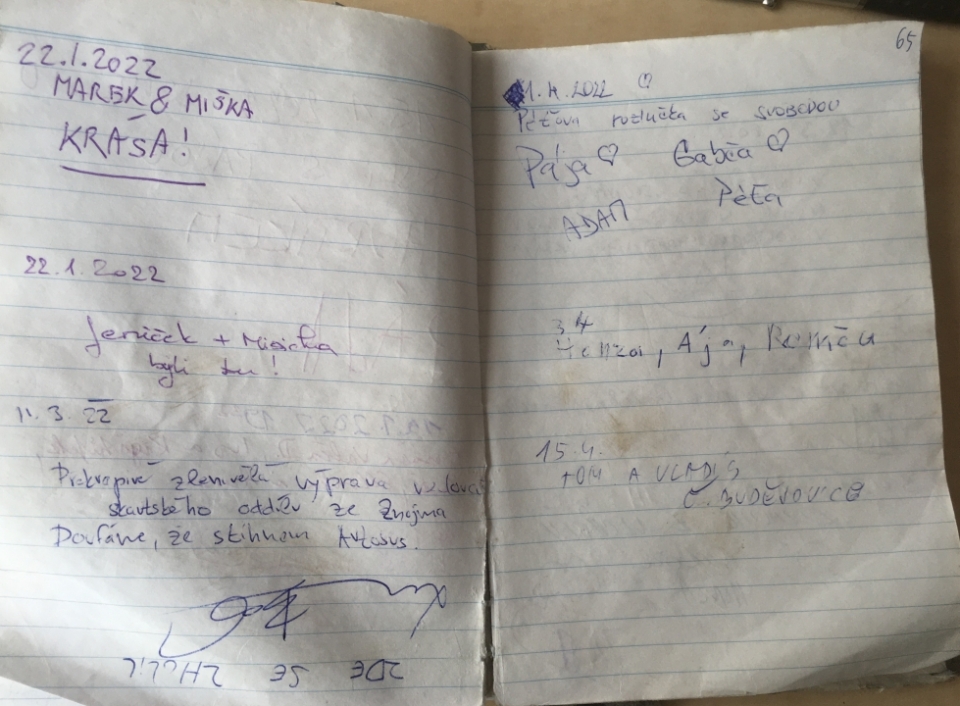 22.1.2022
MAREK & MIŠKA
KRÁSA!
22.1.2022
Jeníček + Misicka
byli tu!
11. 3. 22
Překvapivě zlenivělá výprava
skautského oddílu ze Znojma
Doufáme, že stihnem Autobus.
ZDE SE
65
2022
rozlučka se svobodou
Pája ♡ Gabča ♡
ADAM Péťa
3 4
Honza, Ája,
15.4.
TOM A VLADIS
Č. BUDĚJOVICE